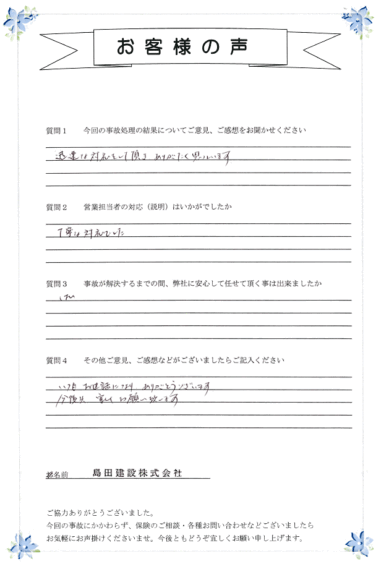 お客様の声
質問1 今回の事故処理の結果についてご意見、ご感想をお聞かせください
迅速な対応をして頂き ありがたく思います
質問2 営業担当者の対応(説明)はいかがでしたか
丁寧な対応でした
質問3 事故が解決するまでの間、弊社に安心して任せて頂く事は出来ましたか
はい
質問4 その他ご意見、ご感想などがございましたらご記入ください
いつも お世話になり ありがとうございます
今後も 宜しくお願い致します
お名前 島田建設株式会社
ご協力ありがとうございました。
今回の事故にかかわらず、保険のご相談・各種お問い合わせなどございましたら
お気軽にお声掛けくださいませ。今後ともどうぞ宜しくお願い申し上げます。